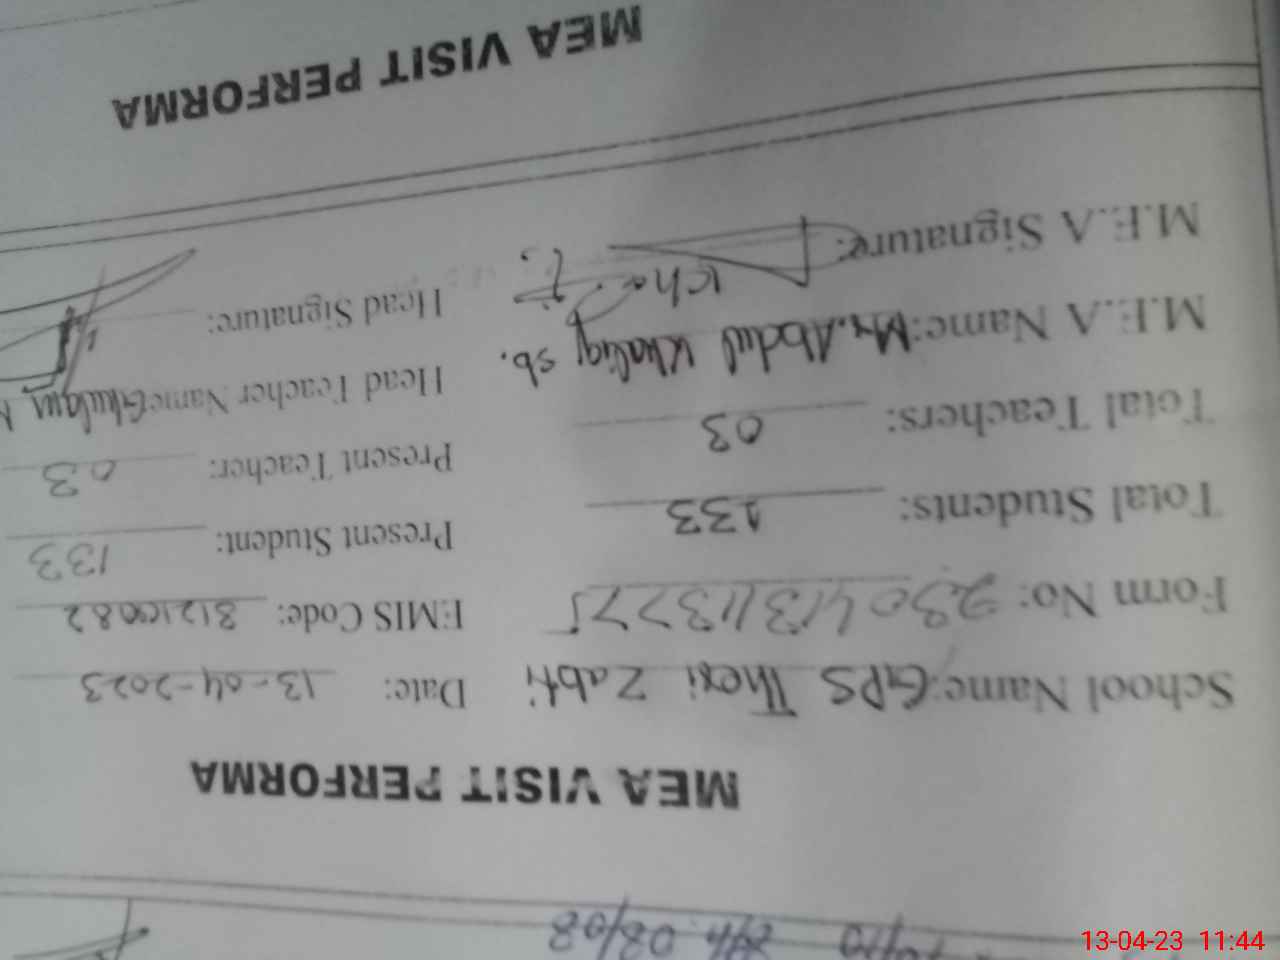 08/08
MEA VISIT PERFORMA
School Name: GPS Theri Zabti Date: 13-04-2023
Form No: EMIS Code: 31210082
Total Students: 133 Present Student: 133
Total Teachers: 03 Present Teacher: 03
M.E.A Name: Mr. Abdul Khaliq sb. Head Teacher Name: Ghulam
M.E.A Signature: Head Signature:
MEA VISIT PERFORMA
13-04-23 11:44